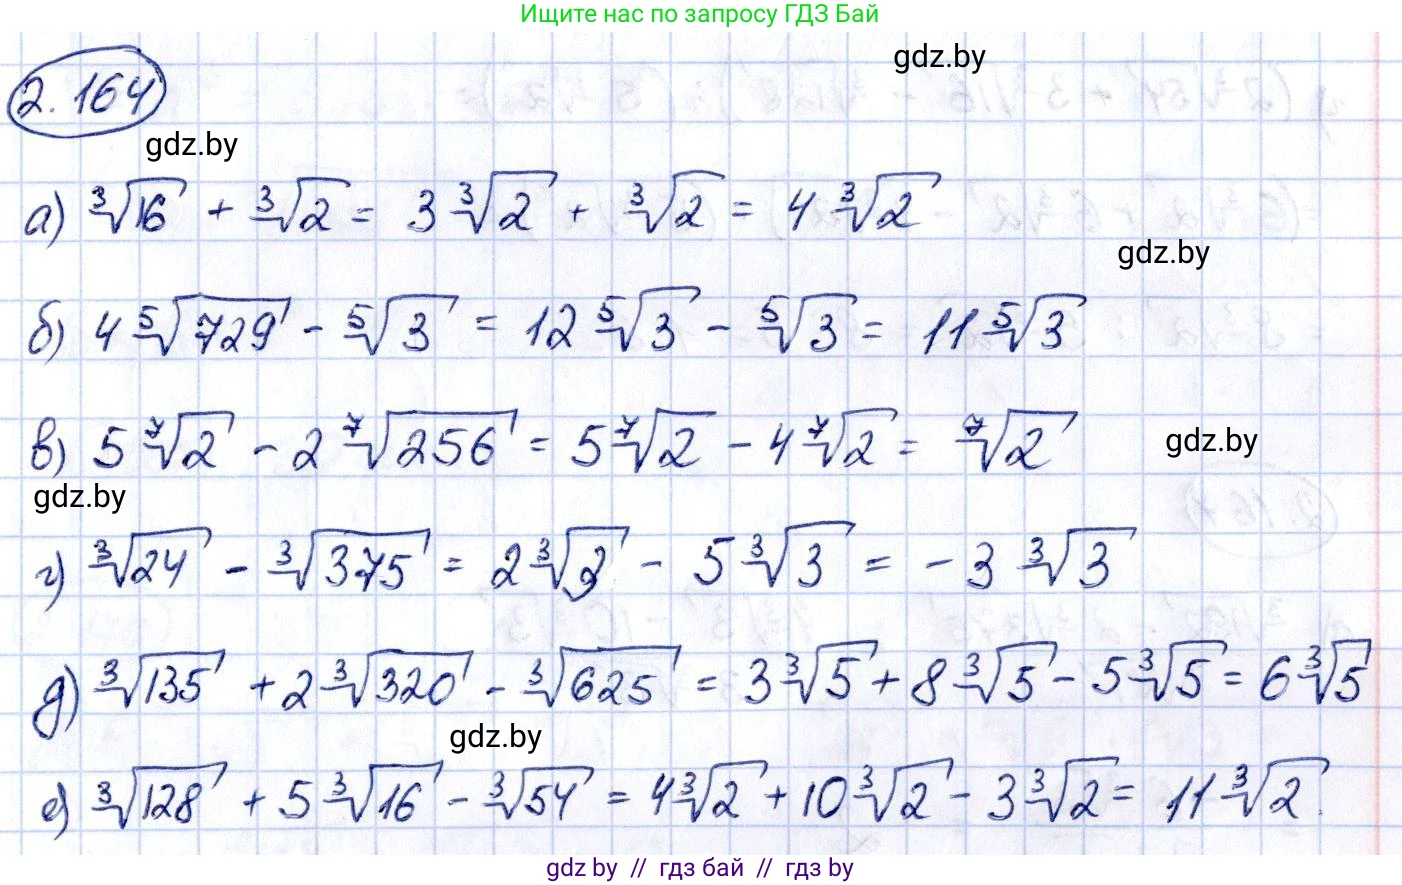 Ищите нас по запросу ГДЗ Бай
gdz.by
2.164
gdz.by
а) ∛16 + ∛2 = 3∛2 + ∛2 = 4∛2
gdz.by
б) 4⁵√729 - ⁵√3 = 12⁵√3 - ⁵√3 = 11⁵√3
в) 5⁷√2 - 2⁷√256 = 5⁷√2 - 4⁷√2 = ⁷√2
gdz.by
gdz.by
г) ∛24 - ∛375 = 2∛3 - 5∛3 = -3∛3
д) ∛135 + 2∛320 - ∛625 = 3∛5 + 8∛5 - 5∛5 = 6∛5
gdz.by
е) ∛128 + 5∛16 - ∛54 = 4∛2 + 10∛2 - 3∛2 = 11∛2.
gdz by // гдз бай // гдз by